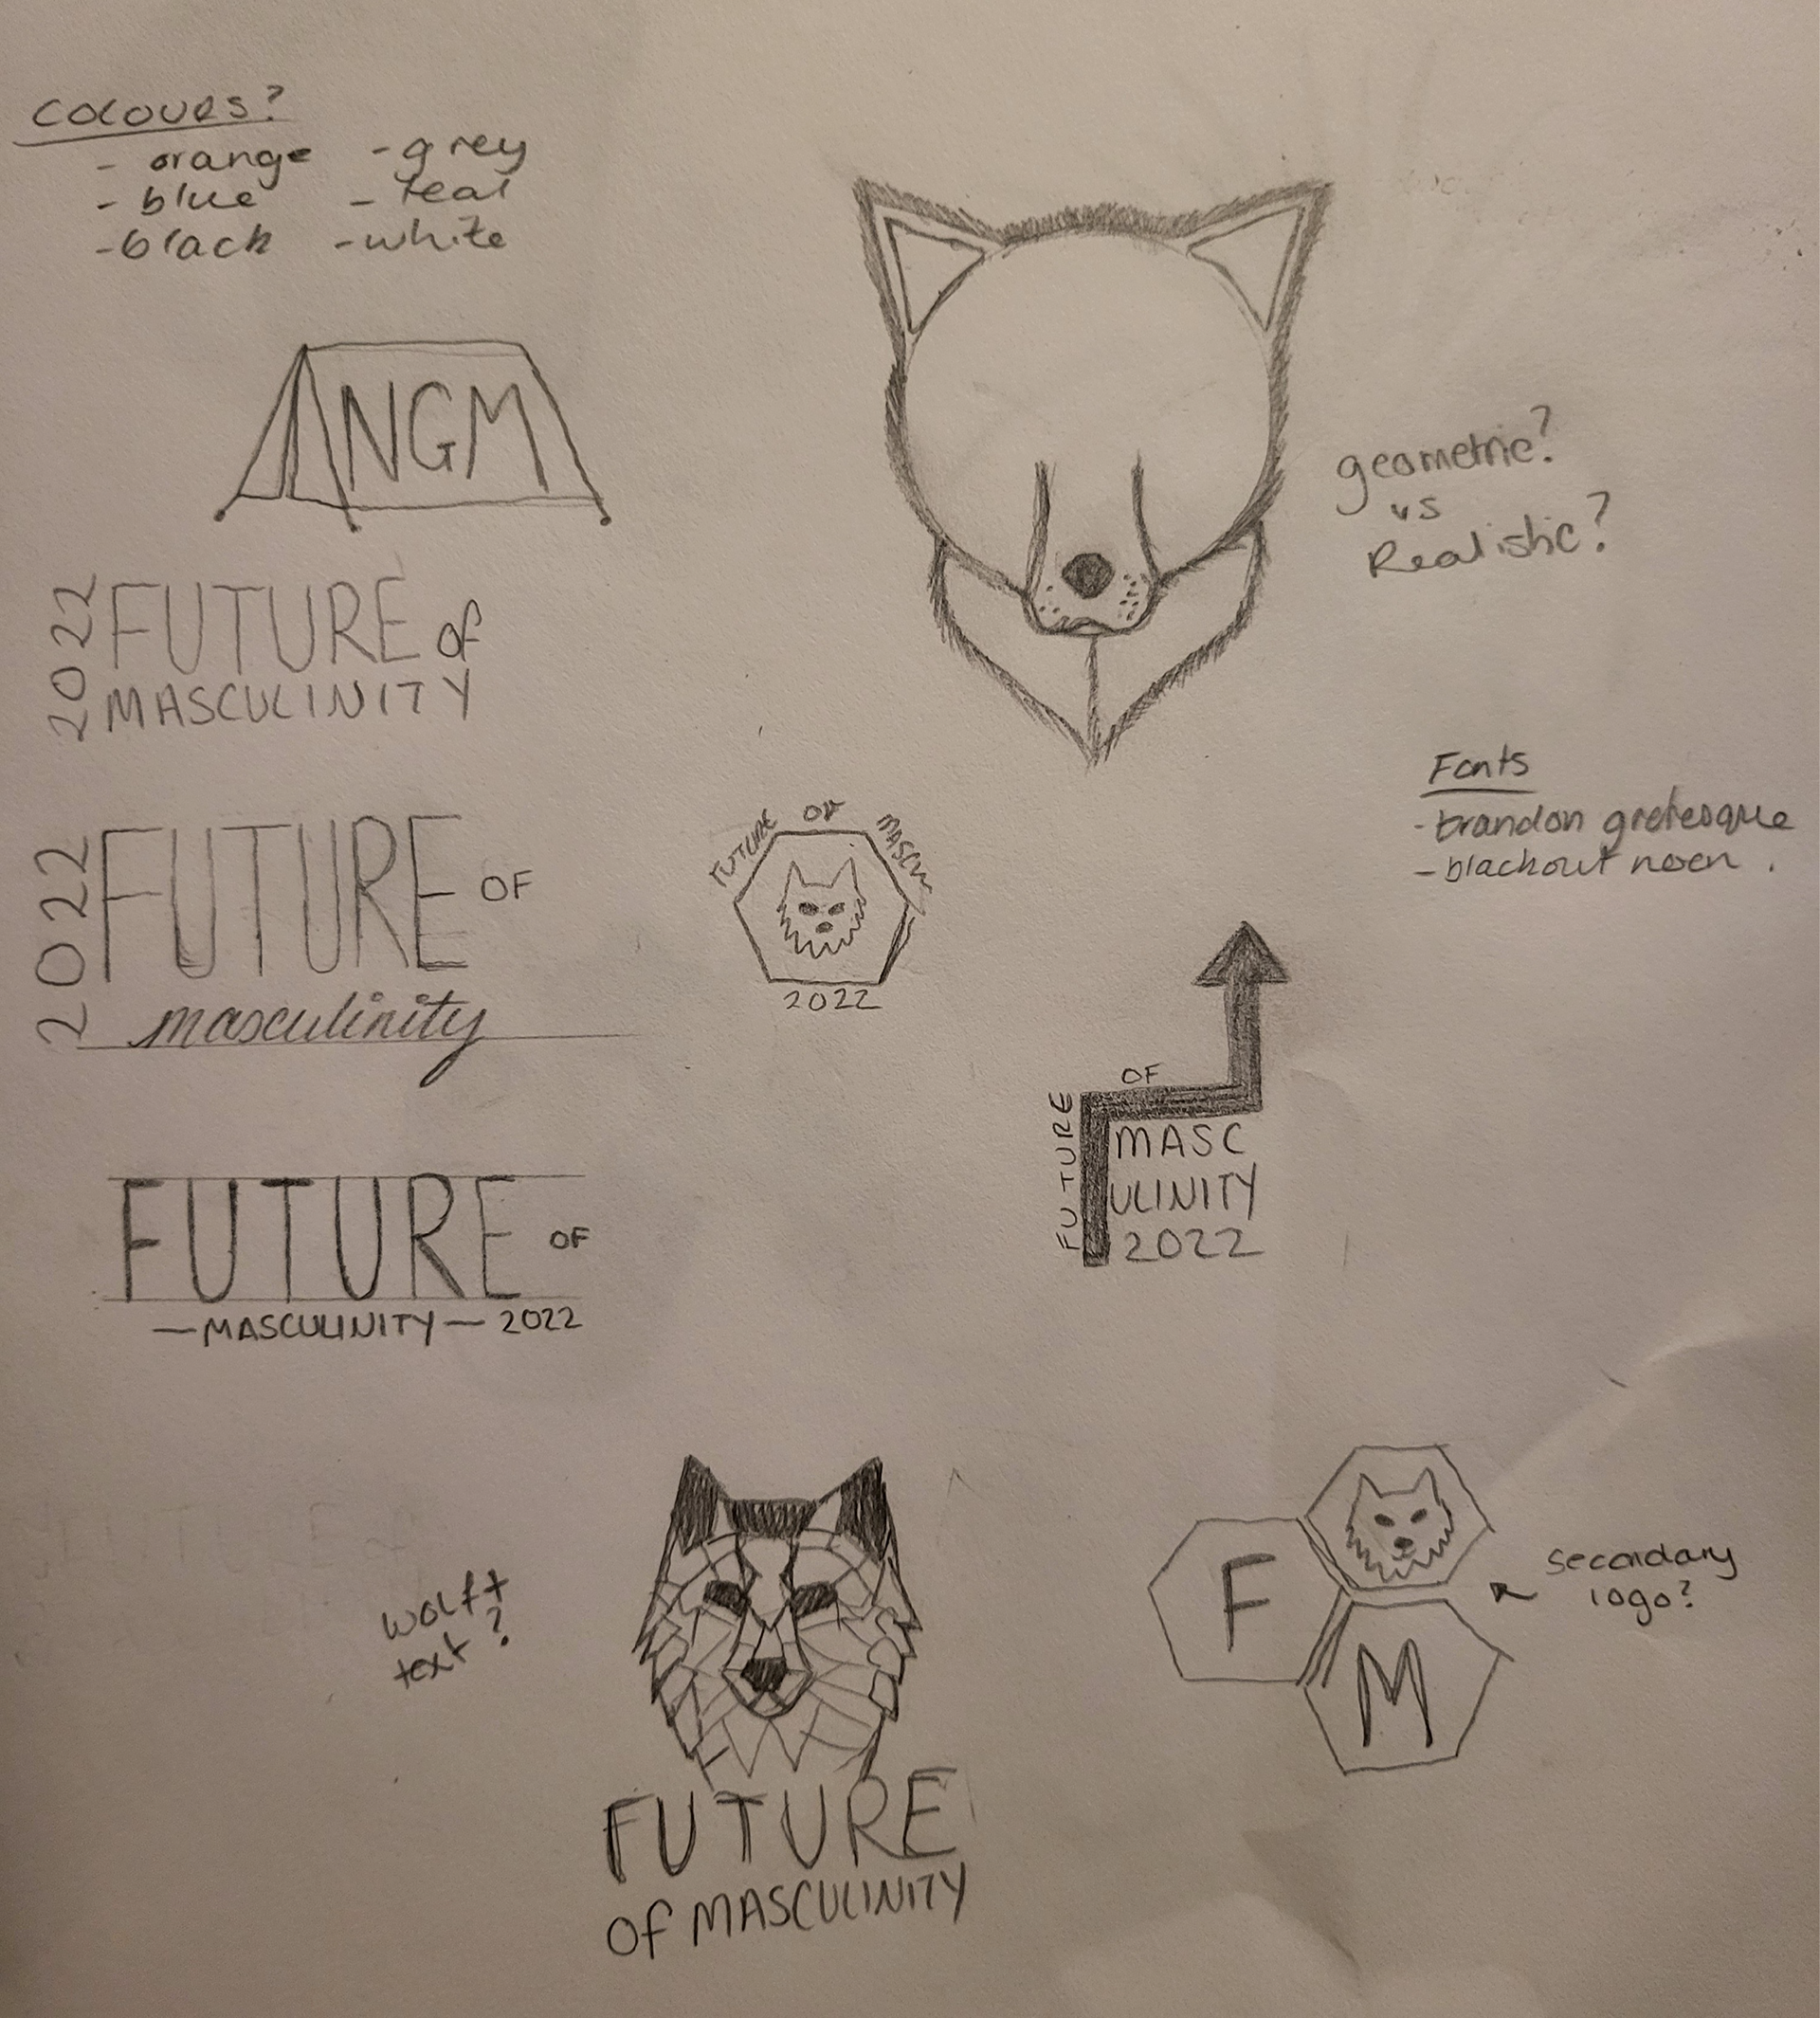 COLOURS?
- orange - grey
- blue - teal
- black - white
NGM
geometric?
vs
Realistic?
2022
FUTURE of
MASCULINITY
Fonts
- brandon grotesque
- blackout noen.
2022
FUTURE OF
masculinity
FUTURE OF MASCU
2022
OF
FUTURE
MASC
ULINITY
2022
FUTURE OF
—MASCULINITY— 2022
wolf +
text?
F
M
secondary
logo?
FUTURE
of MASCULINITY